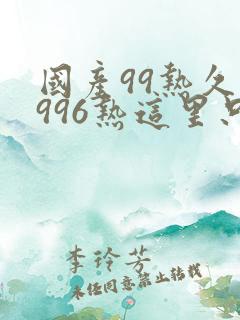 國產99熱久
996熱這里只
李玲芳
未任同意禁止转载